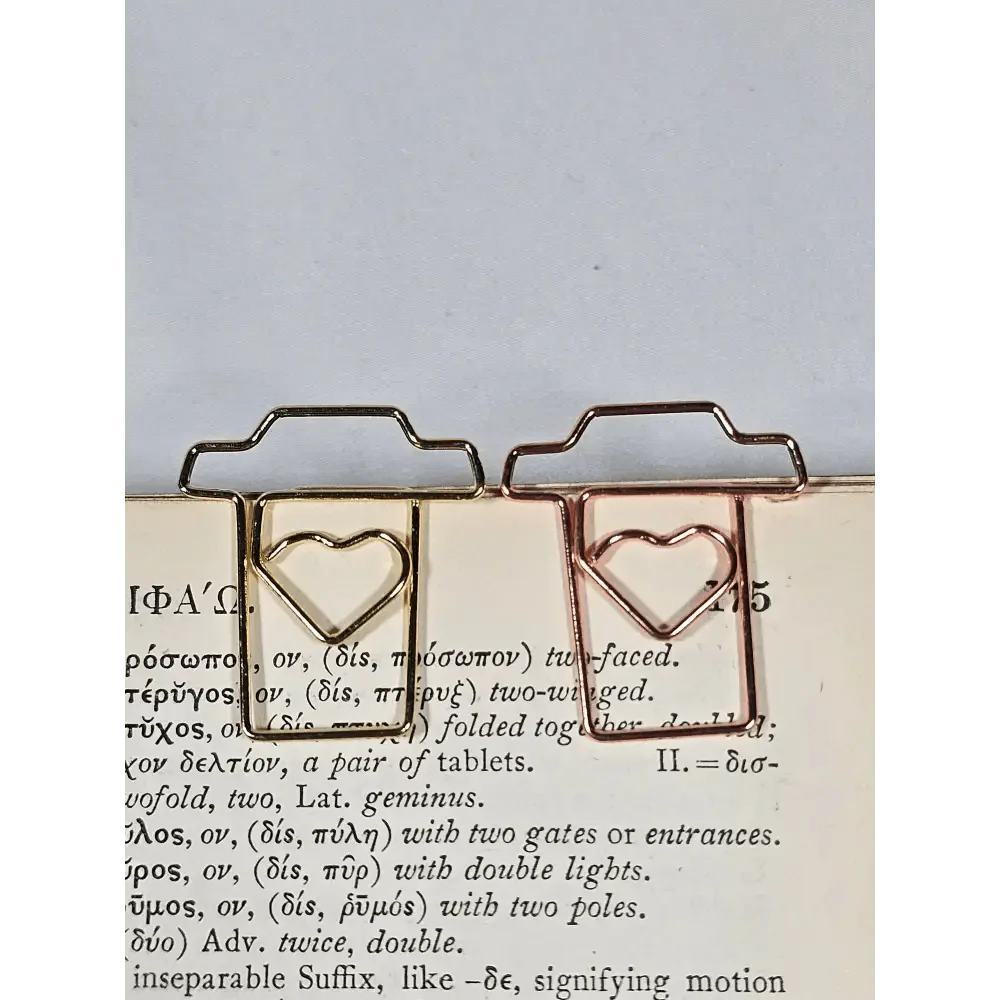 ΙΦΑ'Ω. 175
ρόσωπος, ον, (δίς, πρόσωπον) two-faced.
τέρῠγος, ον, (δίς, πτέρυξ) two-winged.
τῠχος, ον, (δίς, πτυχή) folded together, doubled;
χον δελτίον, a pair of tablets. II. = δισ-
wofold, two, Lat. geminus.
ῠλος, ον, (δίς, πύλη) with two gates or entrances.
ῠρος, ον, (δίς, πῦρ) with double lights.
ῡμος, ον, (δίς, ῥῡμός) with two poles.
(δύο) Adv. twice, double.
inseparable Suffix, like –δε, signifying motion